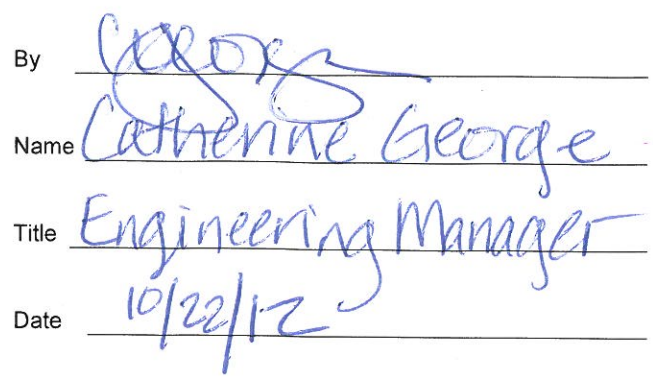 By
Name Catherine George
Title Engineering Manager
Date 10/22/12